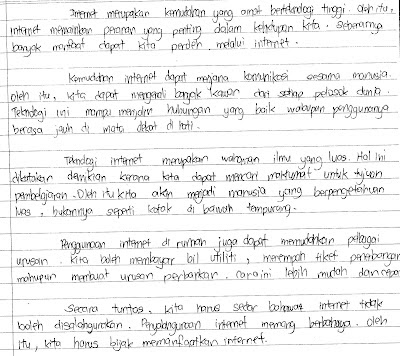 Internet merupakan kemudahan yang amat berteknologi tinggi. Oleh itu,
internet memainkan peranan yang penting dalam kehidupan kita. Sebenarnya
banyak manfaat dapat kita peroleh melalui internet.
Kemudahan internet dapat menjana komunikasi sesama manusia.
oleh itu, kita dapat mengenali banyak kawan dari setiap pelosok dunia.
Teknologi ini mampu menjalin hubungan yang baik walaupun penggunanya
berasa jauh di mata dekat di hati.
Teknologi internet merupakan wahana ilmu yang luas. Hal ini
dikatakan demikian kerana kita dapat mencari maklumat untuk tujuan
pembelajaran. Oleh itu kita akan menjadi manusia yang berpengetahuan
luas, bukannya seperti katak di bawah tempurung.
Penggunaan internet di rumah juga dapat memudahkan pelbagai
urusan. Kita boleh membayar bil utiliti, menempah tiket penerbangan
mahupun membuat urusan perbankan. Cara ini lebih mudah dan cepat
Secara tuntas, kita harus sedar bahawa internet tidak
boleh disalahgunakan. Penyalahgunaan internet memang berbahaya. oleh
itu, kita harus bijak memanfaatkan internet.